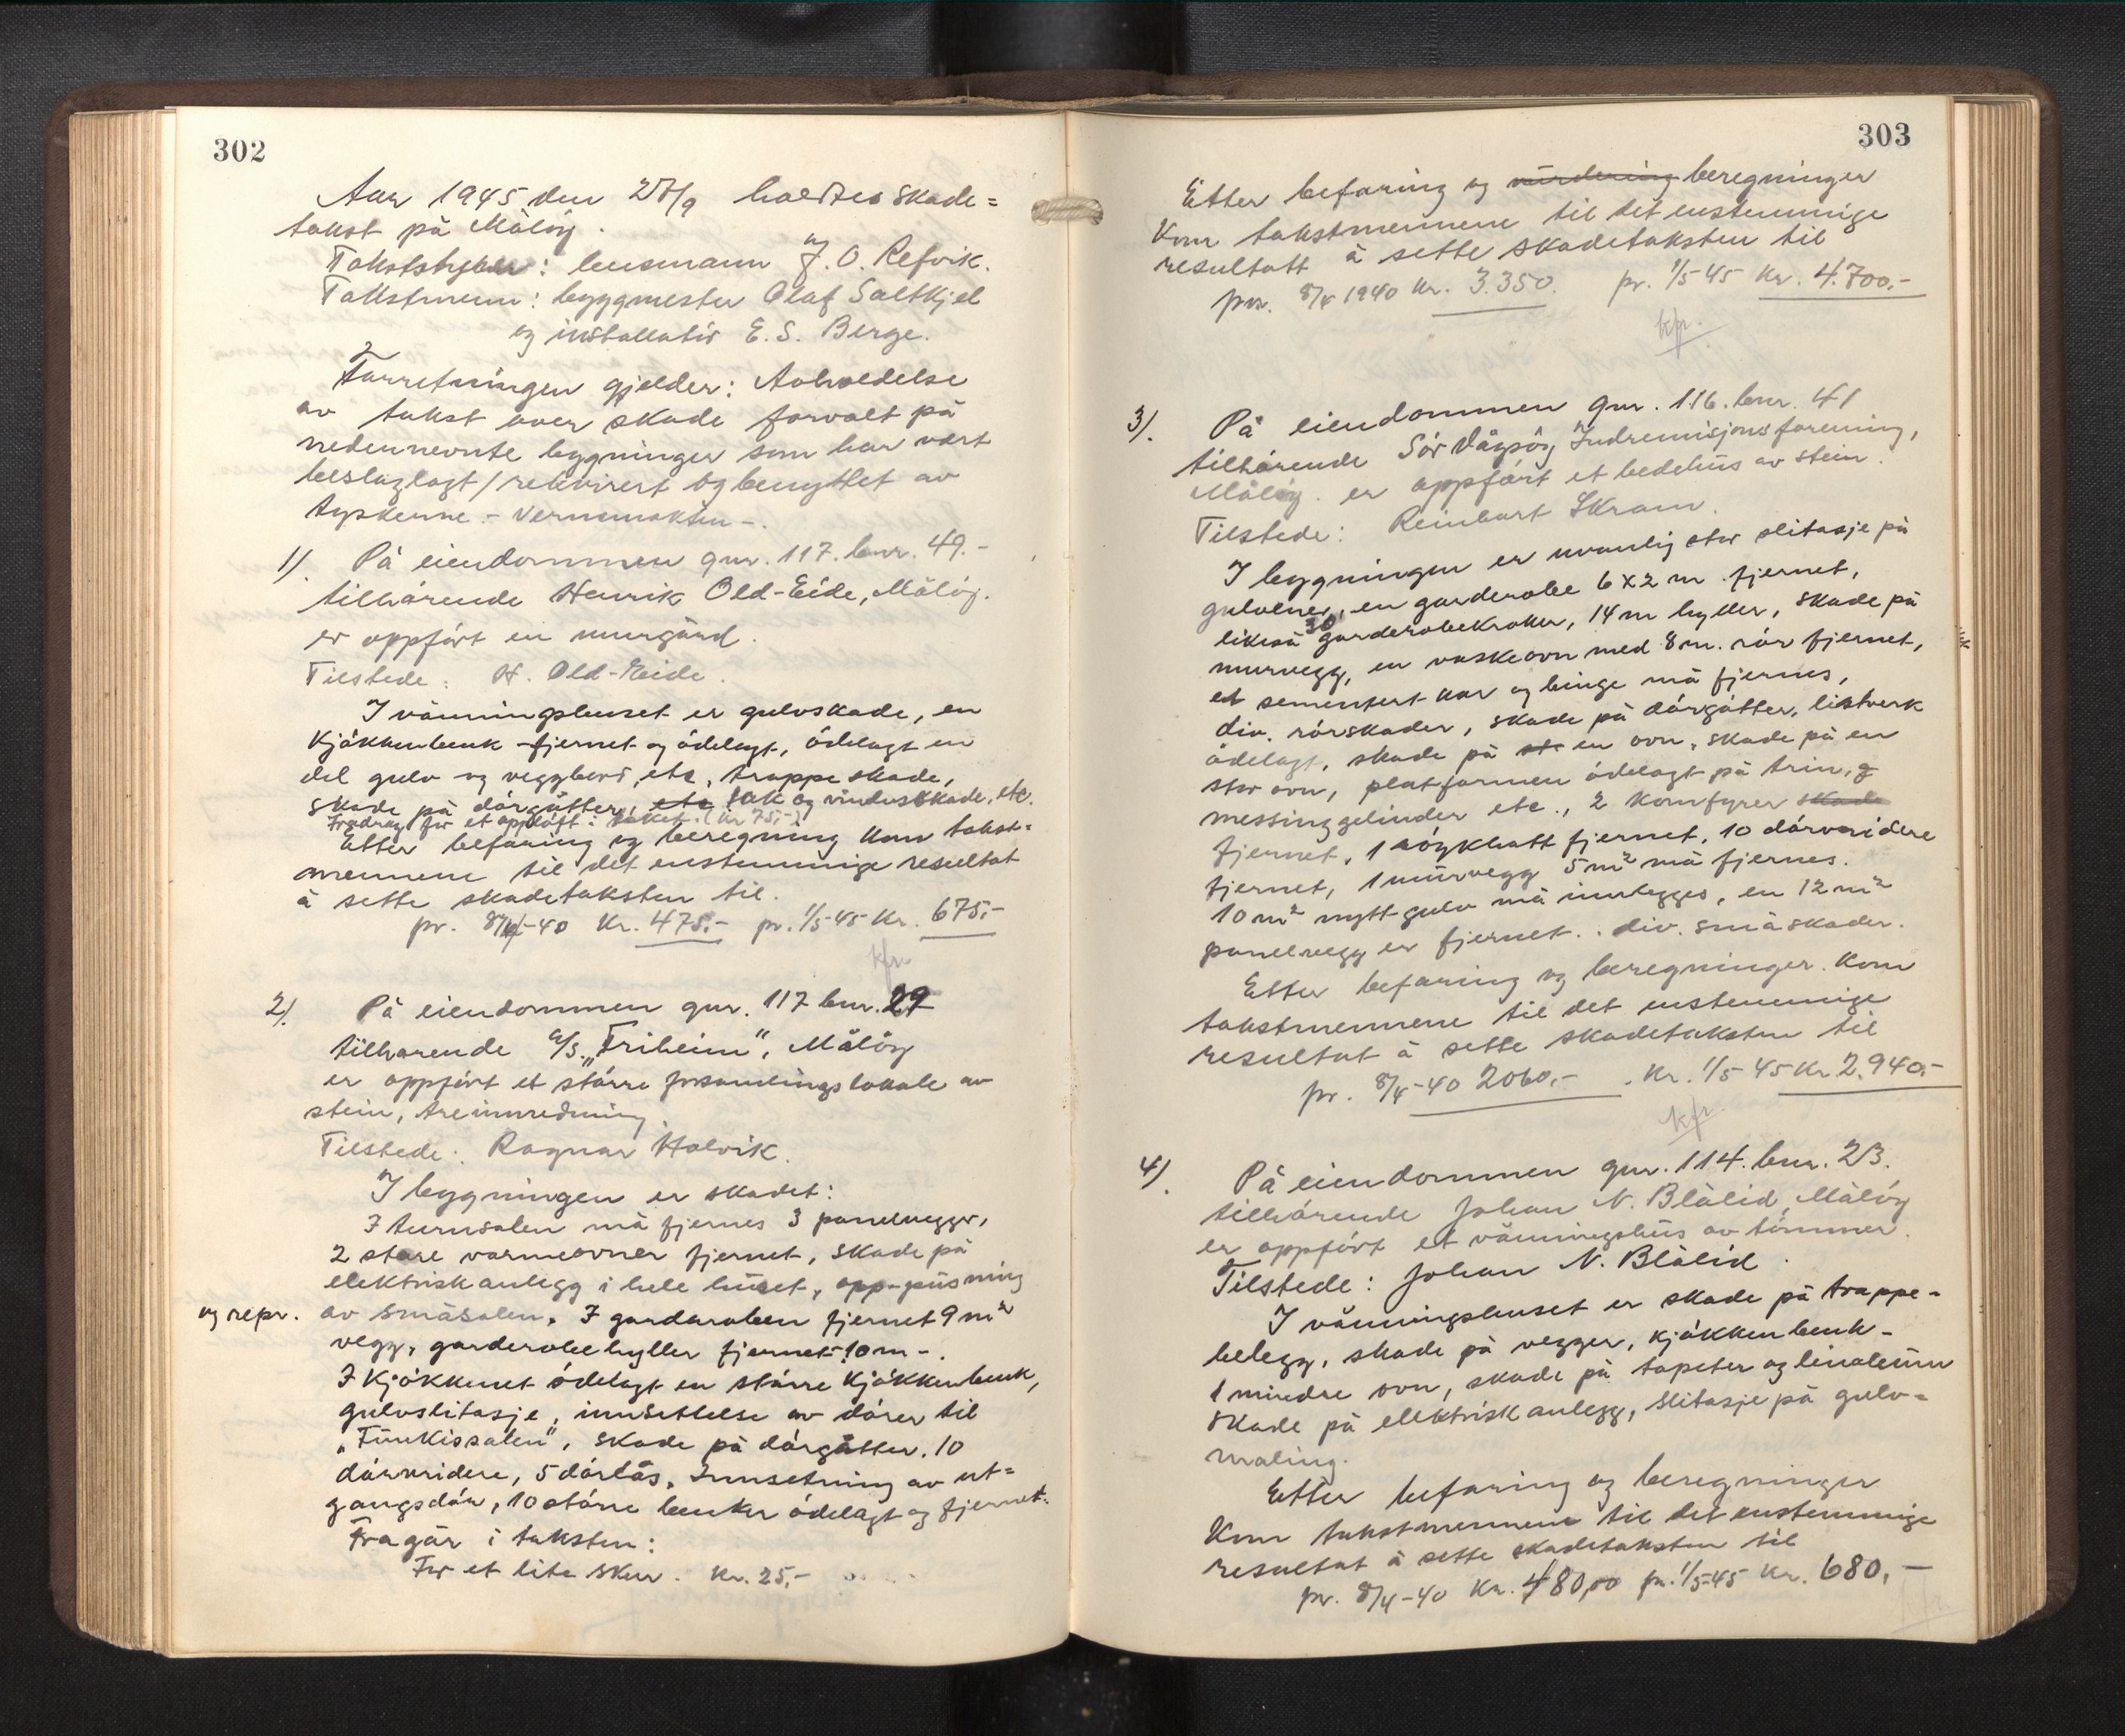 302
Aar 1945 den 25/9 holdtes skade=
takst på Måløy.
Takststyrer: lensmann J. O. Refvik.
Takstmenn: byggmester Olaf Saltkjel
og installatør E. S. Berge.
Forretningen gjelder: Avholdelse
av takst over skade forvolt på
nedennevnte bygninger som har vært
beslaglagt/rekvirert og benyttet av
tyskerne - Vernemakten -.
1). På eiendommen gnr. 117. bnr. 49.-
tilhørende Henrik Old-Eide, Måløy.
er oppført en murgård.
Tilstede: H. Old-Eide.
I våningshuset er gulvskade, en
kjøkkenbenk fjernet og ødelagt, ødelagt en
del gulv og veggbord, etc, trappeskade,
skade på dørgåtter, etc tak og vindusskade, etc.
Fradrag for et oppløft i taket. (kr 75,-)
Etter befaring og beregning kom takst=
mennene til det enstemmige resultat
å sette skadetaksten til.
pr. 8/4-40 kr. 475.- pr. 1/5-45 kr. 675,-
kfr.
2). På eiendommen gnr. 117 bnr. 29
tilhørende A/S. „Friheim", Måløy
er oppført et større forsamlingslokale av
stein, treinnredning.
Tilstede: Ragnar Halvik.
I bygningen er skadet:
I turnsalen må fjernes 3 panelvegger,
2 store varmeovner fjernet, skade på
elektrisk anlegg i hele huset, opp-pusning
og repr. av småsalen. I garderoben fjernet 9 m²
vegg, garderobehyller fjernet 10 m -.
I kjøkkenet ødelagt en større kjøkkenbenk,
gulvslitasje, innsettelse av dører til
„Funkissalen", skade på dørgåtter. 10
dørvridere, 5 dørlås, Innsetning av ut=
gangsdør, 10 større benker ødelagt og fjernet.
Fragår i taksten:
For et lite skur. kr. 25,-
303
Etter befaring og vurdering beregninger
kom takstmennene til det enstemmige
resultatt å sette skadetaksten til
pr. 8/4 1940 kr. 3.350. pr. 1/5 45 kr. 4.700,-
kfr.
3). På eiendommen gnr. 116. bnr. 41
tilhørende Sør Vågsøy Indremisjonsforening,
Måløy. er oppført et bedehus av stein.
Tilstede: Reinhart Skram.
I bygningen er uvanlig stor slitasje på
gulvene, en garderobe 6 x 2 m fjernet,
likeså 30 garderobekroker, 14 m hyller, skade på
murvegg, en vaskeovn med 8 m. rør fjernet,
et sementert kar og binge må fjernes,
div. rørskader, skade på dørgåtter, listverk
ødelagt, skade på st en ovn, skade på en
stor ovn, platformen ødelagt på trin, og
messinggelinder etc., 2 komfyrer skade
fjernet, 1 røykhatt fjernet, 10 dørvridere
fjernet, 1 murvegg 5 m² må fjernes.
10 m² nytt gulv må innlegges, en 12 m²
panelvegg er fjernet. div. småskader.
Etter befaring og beregninger kom
takstmennene til det enstemmige
resultat å sette skadetaksten til
pr. 8/4-40 2060,- . kr. 1/5 45 kr 2.940,-
kfr.
4). På eiendommen gnr. 114. bnr. 23.
tilhørende Johan N. Blålid, Måløy
er oppført et våningshus av tømmer.
Tilstede: Johan N. Blålid.
I våningshuset er skade på trappe-
belegg, skade på vegger, kjøkkenbenk-
1 mindre ovn, skade på tapeter og linoleum
skade på elektrisk anlegg, slitasje på gulv=
maling.
Etter befaring og beregninger
kom takstmennene til det enstemmige
resultat å sette skadetaksten til
pr. 8/4-40 kr. 480,00 pr. 1/5-45 kr. 680,-